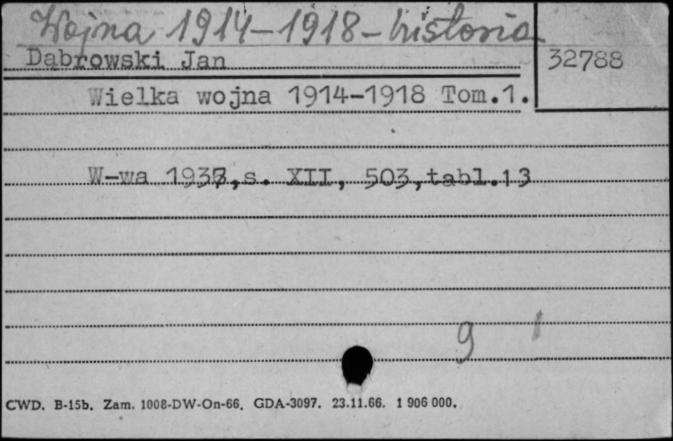 Wojna 1914-1918 - historia
Dąbrowski Jan
32788
Wielka wojna 1914-1918 Tom.1.
W-wa 1937,s. XII, 503,tabl.13
9 1
CWD. B-15b. Zam. 1008-DW-On-66. GDA-3097. 23.11.66. 1 906 000.